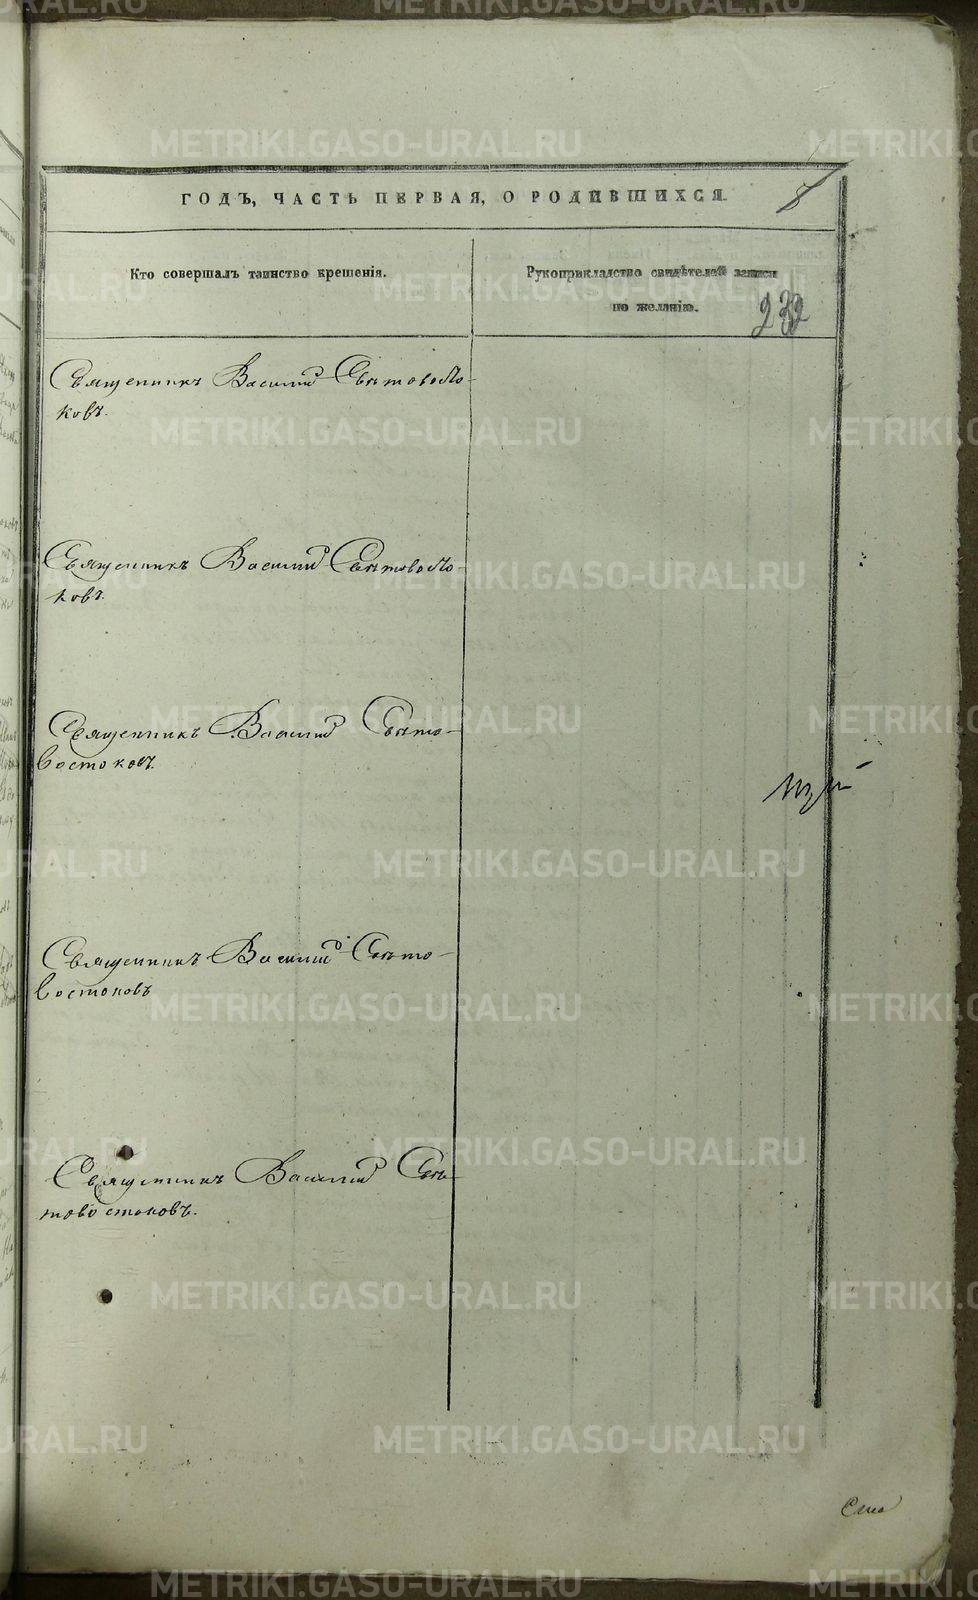 ГОДЪ, ЧАСТЬ ПЕРВАЯ, О РОДИВШИХСЯ.
8
Кто совершалъ таинство крещенія.
Рукоприкладство свидѣтелей записи
по желанію.
232
Священникъ Василій Свѣтовосто-
ковъ.
Священникъ Василій Свѣтовосто-
ковъ.
Священникъ Василій Свѣто-
востоковъ.
Священникъ Василій Свѣто-
востоковъ
Священникъ Василій Свѣ-
товостоковъ.
METRIKI.GASO-URAL.RU